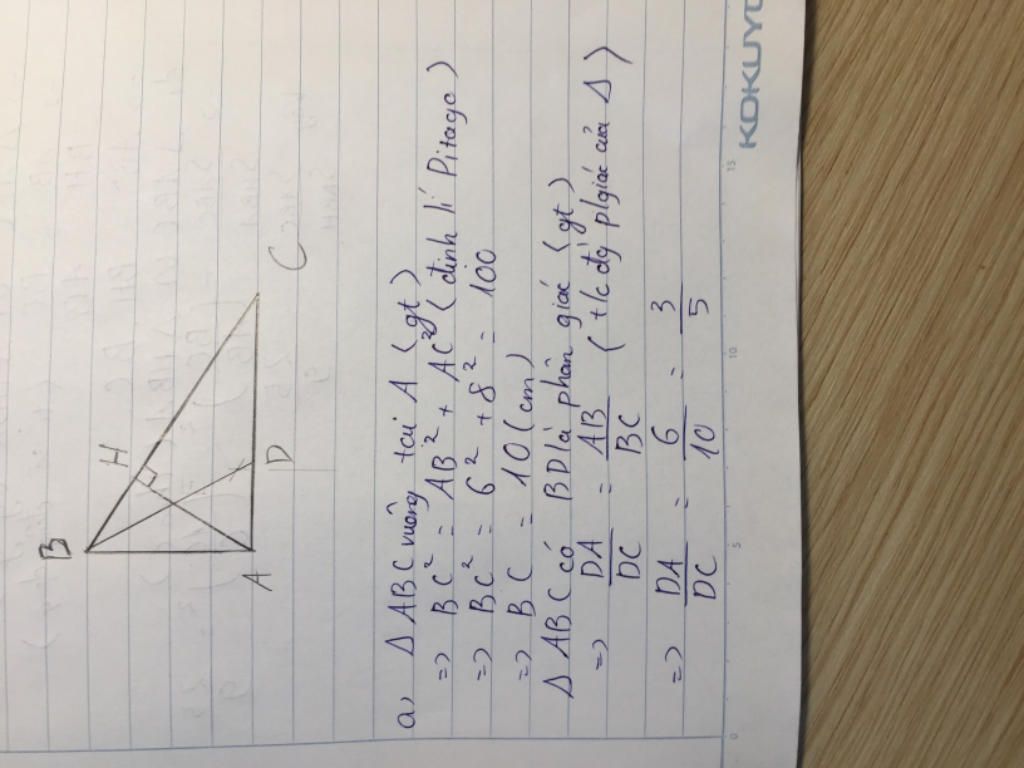 B
H
A
D
C
a) Δ ABC vuông tại A (gt)
=> BC² = AB² + AC² (định lí Pitago)
=> BC² = 6² + 8² = 100
=> BC = 10 (cm)
Δ ABC có BD là phân giác (gt)
=> DA/DC = AB/BC (t/c đg p/giác của Δ)
=> DA/DC = 6/10 = 3/5
0 5 10 15
KOKUYO